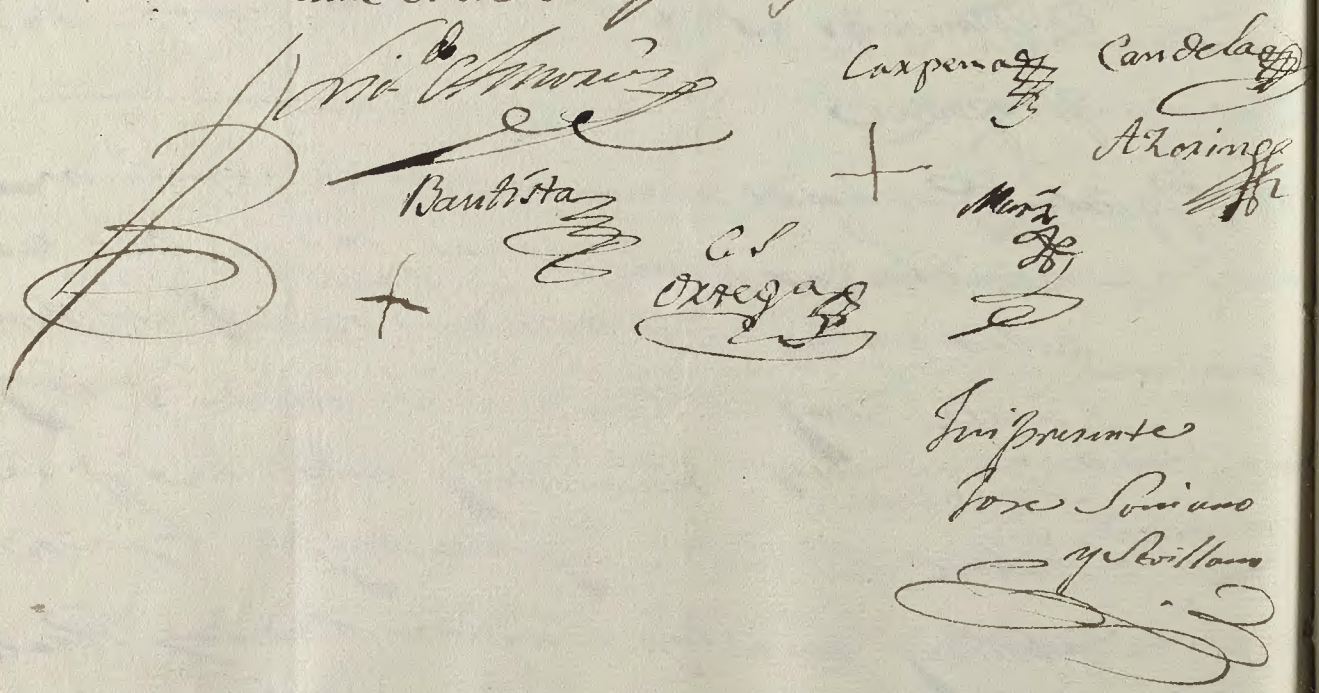 Lic.do Amorós
Carpena Candela
Azorin
+
Bautista
Muñoz
+
Cs
Ortega
Fui presente
Jose Soriano
y Sevillano